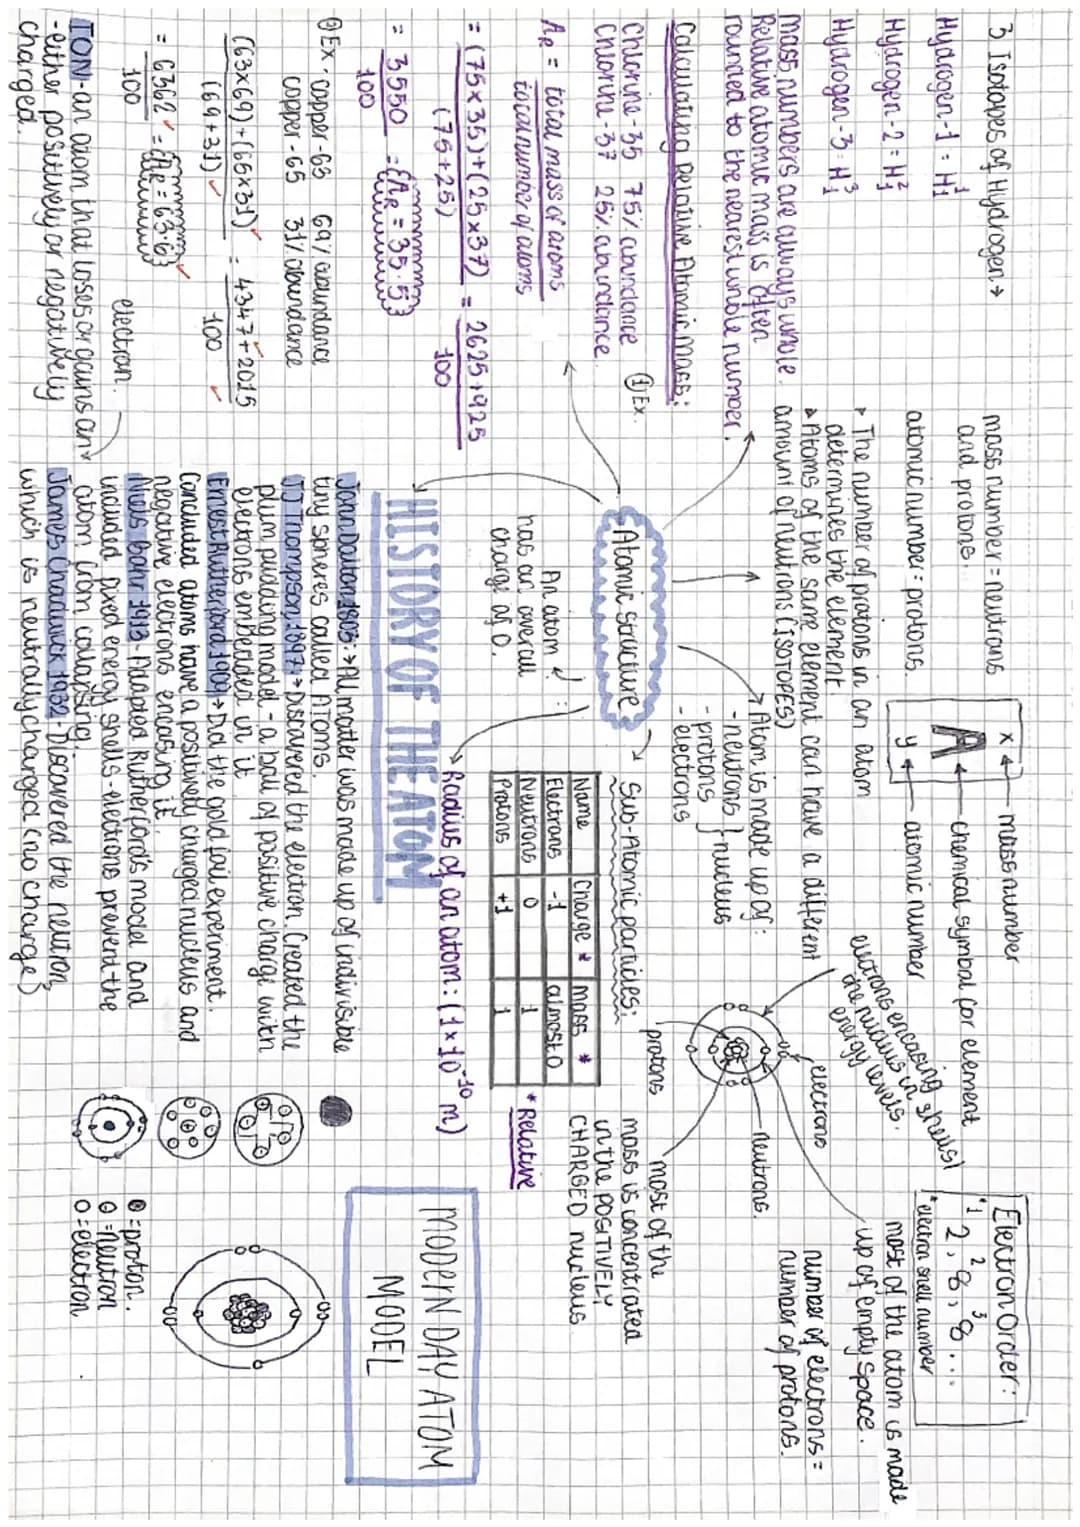 3 Isotopes of Hydrogen →
Hydrogen-1 = H¹₁
Hydrogen-2 = H²₁
Hydrogen-3 = H³₁
mass numbers are always whole.
Relative atomic mass is often
rounded to the nearest whole number.
Calculating relative Atomic mass:
① Ex.
Chlorine-35 75% abundance
Chlorine-37 25% abundance
AR = total mass of atoms
total number of atoms
= (75×35)+(25×37) = 2625+925
(75+25) 100
= 3550 = AR = 35.5
100
② Ex. copper-63 69% abundance
copper-65 31% abundance
(63×69)+(65×31) = 4347+2015
(69+31) 100
= 6362 = AR = 63.6
100
ION- an atom that loses or gains an
electron.
-either positively or negatively
charged.
mass number = neutrons
and protons.
atomic number = protons.
x ← mass number
A ← chemical symbol for element
y ← atomic number
▸ The number of protons in an atom
determines the element
▸ Atoms of the same element can have a different
amount of neutrons (ISOTOPES)
→ Atom is made up of:
- neutrons } nucleus
- protons
- electrons
Atomic structure
An atom
has an overall
charge of 0.
Sub-Atomic particles:
Name Charge * mass *
Electrons -1 almost 0
Neutrons 0 1
Protons +1 1
* Relative
Radius of an atom: (1×10⁻¹⁰ m)
Electron Order:
*1 2 3
2, 8, 8...
*electron shell number
electrons encasing shells/
the nucleus in
energy levels.
electrons
neutrons.
protons
most of the atom is made
up of empty space.
number of electrons =
number of protons.
most of the
mass is concentrated
in the POSITIVELY
CHARGED nucleus
HISTORY OF THE ATOM
John Dalton 1803: → All matter was made up of indivisible
tiny spheres called ATOMS.
JJ Thompson, 1897: → Discovered the electron. Created the
plum pudding model - a ball of positive charge with
electrons embedded in it
Ernest Rutterford 1909 → Did the gold foil experiment.
Concluded atoms have a positively charged nucleus and
negative electrons encasing it.
Niels Bohr 1913 - Adapted Rutherford's model and
included fixed energy shells - electrons prevent the
atom from collapsing.
James Chadwick 1932 - Discovered the neutron
which is neutrally charged (no charge)
MODERN DAY ATOM
MODEL
⊕ = proton.
⊖ = neutron
O = electron